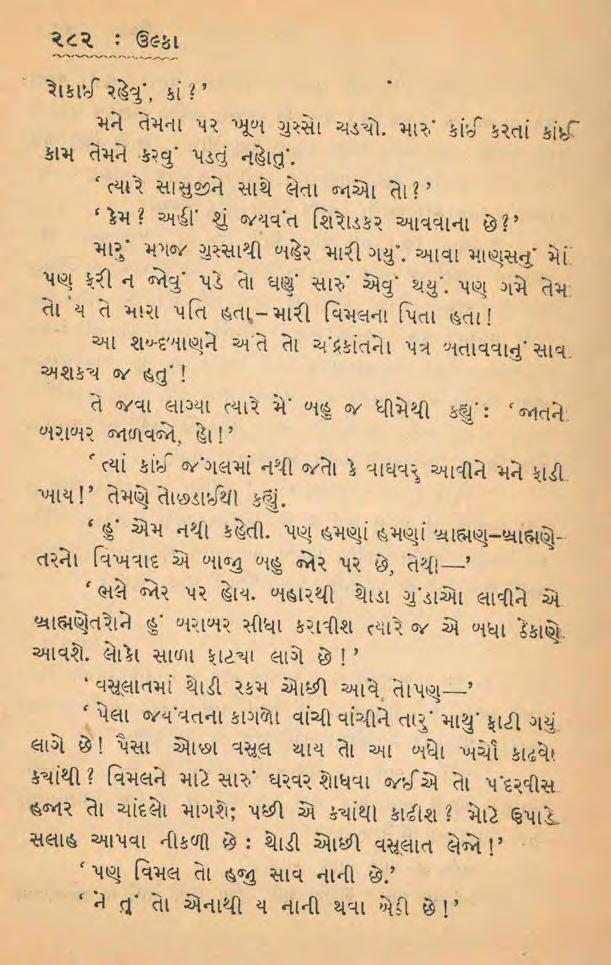 ૨૮૨ : ઉલ્કા
રોકાઈ રહેવું, કાં ?’
મને તેમના પર ખૂબ ગુસ્સો ચડયો. મારું કાંઈ કરતાં કાંઈ
કામ તેમને કરવું પડતું નહોતું.
‘ ત્યારે સાસુજીને સાથે લેતા જાઓ તો ?’
‘ કેમ ? અહીં શું જયવંત શિરોડકર આવવાના છે ?’
મારું મગજ ગુસ્સાથી બહેર મારી ગયું. આવા માણસનું મોં
પણ ફરી ન જોવું પડે તો ઘણું સારું એવું થયું. પણ ગમે તેમ
તો ય તે મારા પતિ હતા – મારી વિમલના પિતા હતા !
આ શબ્દબાણને અંતે તો ચંદ્રકાંતનો પત્ર બતાવવાનું સાવ
અશકય જ હતું !
તે જવા લાગ્યા ત્યારે મેં બહુ જ ધીમેથી કહ્યું : ‘ જાતને
બરાબર જાળવજો, હો !’
‘ ત્યાં કાંઈ જંગલમાં નથી જતો કે વાઘવરુ આવીને મને ફાડી
ખાય !’ તેમણે તોછડાઈથી કહ્યું.
‘ હું એમ નથી કહેતી. પણ હમણાં હમણાં બ્રાહ્મણ–બ્રાહ્મણે-
તરનો વિખવાદ એ બાજુ બહુ જોર પર છે, તેથી—’
‘ ભલે જોર પર હોય. બહારથી થોડા ગુંડાઓ લાવીને એ
બ્રાહ્મણેતરોને હું બરાબર સીધા કરાવીશ ત્યારે જ એ બધા ઠેકાણે
આવશે. લોકો સાળા ફાટયા લાગે છે !’
‘ વસૂલાતમાં થોડી રકમ ઓછી આવે તોપણ—’
‘ પેલા જયવંતના કાગળો વાંચી વાંચીને તારું માથું ફાટી ગયું
લાગે છે ! પૈસા ઓછા વસૂલ થાય તો આ બધો ખર્ચો કાઢવો
કયાંથી ? વિમલને માટે સારું ઘરવર શોધવા જઈએ તો પંદરવીસ
હજાર તો ચાંદલો માગશે; પછી એ કયાંથી કાઢીશ ? મોટે ઉપાડે
સલાહ આપવા નીકળી છે : થોડી ઓછી વસૂલાત લેજો !’
‘ પણ વિમલ તો હજી સાવ નાની છે.’
‘ ને તું તો એનાથી ય નાની થવા બેઠી છે !’